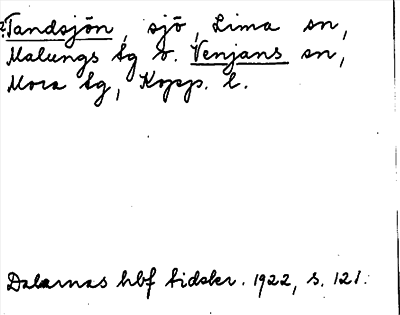 Tandsjön, sjö, Lima sn,
Malungs tg o. Venjans sn,
Mora tg, Kopp. l.
Dalarnas hbf tidskr. 1922, s. 121.